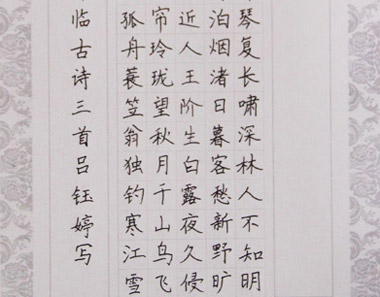 琴复长啸深林人不知明
泊烟渚日暮客愁新野旷
近人王阶生白露夜久侵
帘玲珑望秋月千山鸟飞
孤舟蓑笠翁独钓寒江雪
临古诗三首吕钰婷写